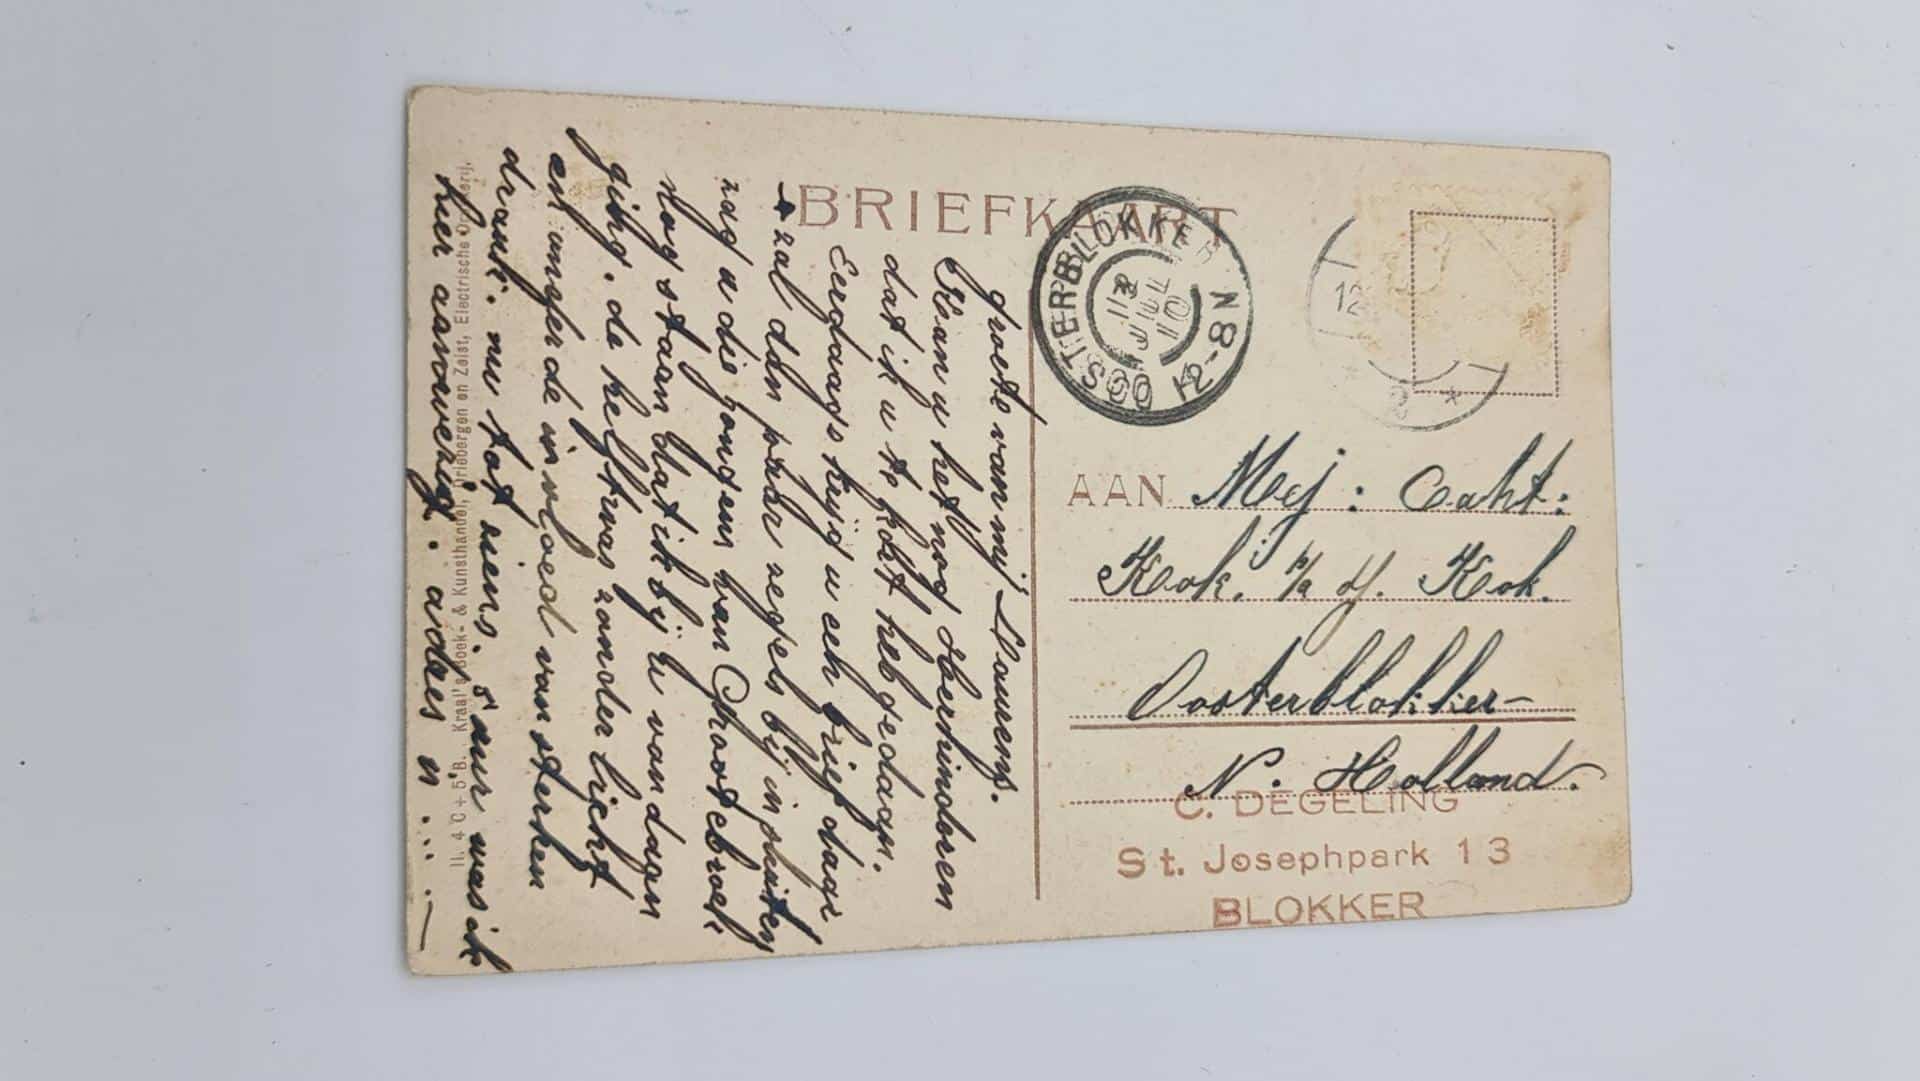 BRIEFKAART
OOSTERBLOKKER
12-8 N
10 JUL
12
AAN Mej: Caht:
Kok. p/a J. Kok.
Oosterblokker-
N. Holland.
C. DEGELING
St. Josephpark 13
BLOKKER
groete van mij Laurens.
Kan u het nog herinderen
dat ik u te pakt heb gedaan.
Eerdaags krijd u een brief daar
zal dan paar regels bij in sluiten
zag u die jongens van Grootebroek
nog staan dat ik bij u vandaan
ging. de helft was zonder licht
en ongerde invloed van sterken
drank. nu tot ziens. s'uur was ik
hier aanwezig. adies n....
II. 4 C + 5 B. Kraal's Boek- & Kunsthandel, Driebergen en Zeist, Electrische Drukkerij.